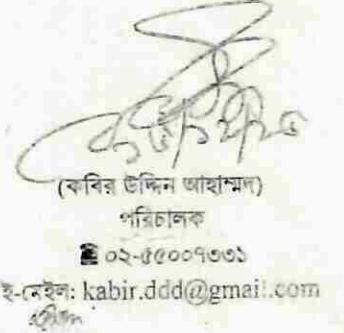 (কবির উদ্দিন আহাম্মদ)
পরিচালক
☎ ০২-৫৫০০৭৩৩১
ই-মেইল: kabir.ddd@gmail.com